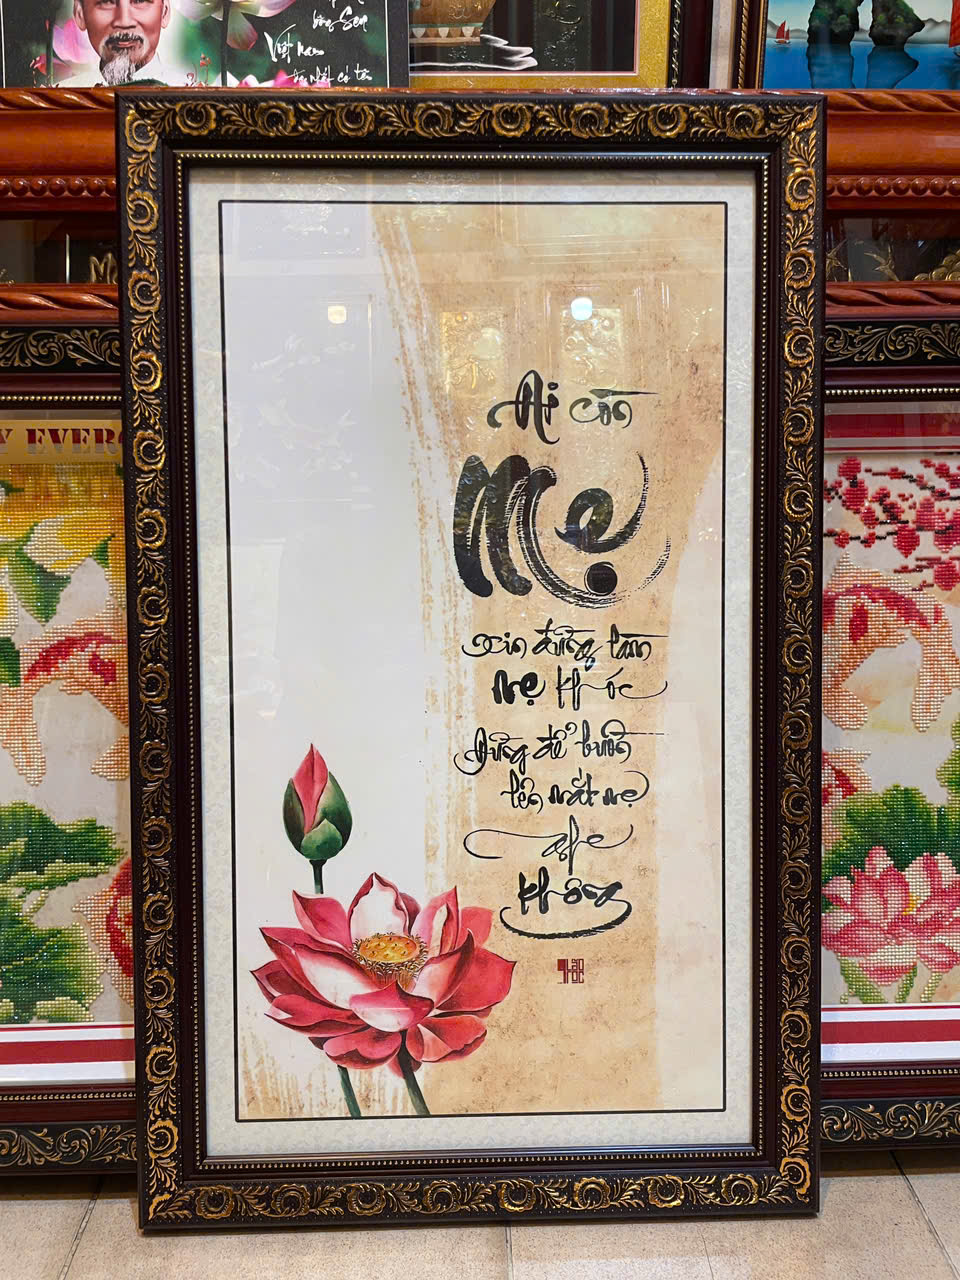 bông Sen
Việt Nam
đẹp nhất có tên
Y EVER
Ai còn
Mẹ
xin đừng làm
mẹ khóc
Đừng để buồn
lên mắt mẹ
nghe
không